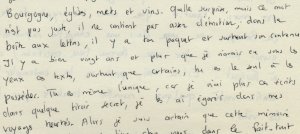 Bourgogne, églises, mets et vins. Quelle surprise, mais ce mot
n'est pas juste, il ne contient pas assez d'émotion, dans la
boîte aux lettres, il y a ton paquet et surtout son contenu
Il y a bien vingt ans et plus que je n'aurais eu sous les
yeux ces texts, surtout que certains, tu es le seul à les
posséder. Tu es même l'unique, car je n'ai plus ces écrits
dans quelque tiroir secret, je les ai égarés dans mes
voyages heurtés. Alors je suis certain que cette mémoire
vous dans le fait-tout